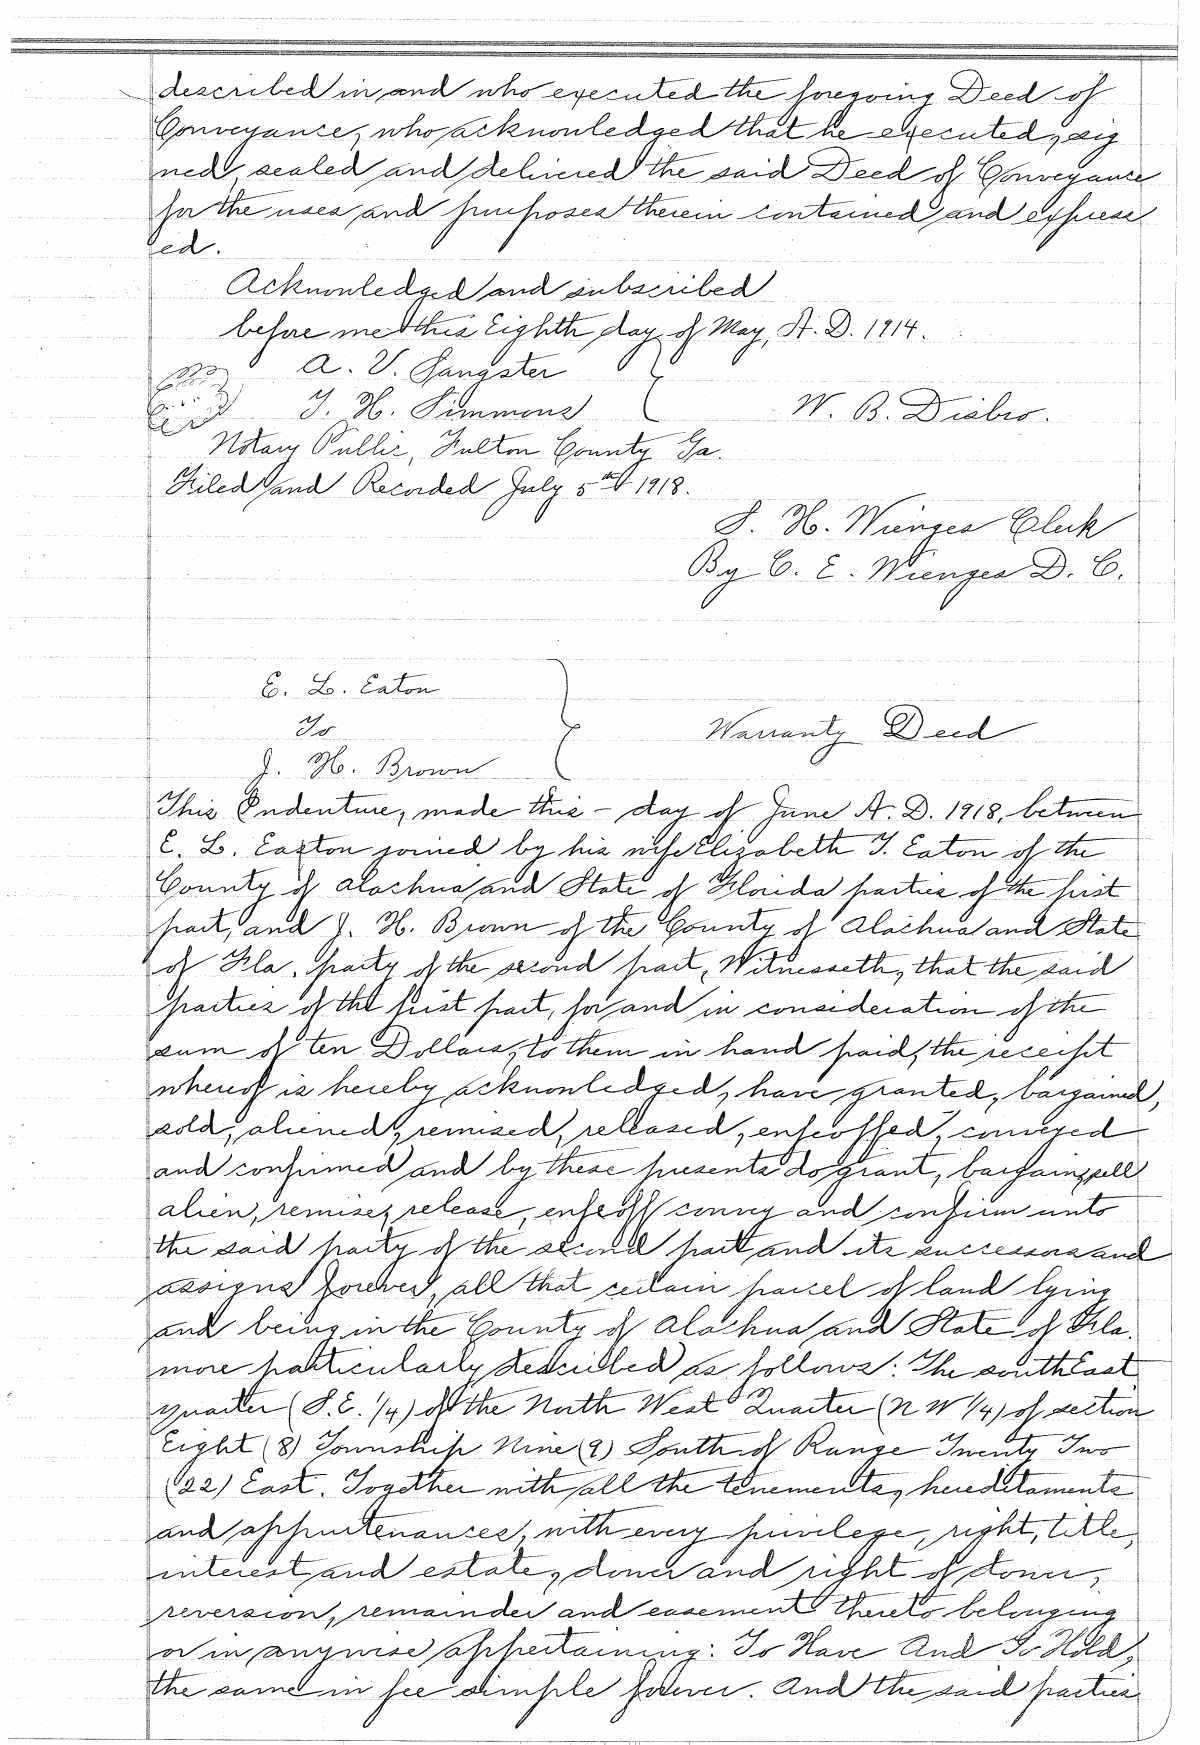 described in and who executed the foregoing Deed of
Conveyance, who acknowledged that he executed, sig
ned, sealed and delivered the said Deed of Conveyance
for the uses and purposes therein contained and express
ed.
Acknowledged and subscribed
before me this Eighth day of May, A. D. 1914.
A. V. Sangster
T. H. Simmons W. B. Disbro.
Notary Public, Fulton County Ga.
Filed and Recorded July 5th 1918.
S. H. Wienges Clerk
By C. E. Wienges D. C.
E. L. Eaton
To Warranty Deed
J. H. Brown
This Indenture, made this - day of June A. D. 1918, between
E. L. Eaton joined by his wife Elizabeth T. Eaton of the
County of Alachua and State of Florida parties of the first
part, and J. H. Brown of the County of Alachua and State
of Fla. party of the second part, Witnesseth, that the said
parties of the first part, for and in consideration of the
sum of ten Dollars, to them in hand paid, the receipt
whereof is hereby acknowledged, have granted, bargained,
sold, aliened, remised, released, enfeoffed, conveyed
and confirmed and by these presents do grant, bargain, sell
alien, remise, release, enfeoff convey and confirm unto
the said party of the second part and its successors and
assigns forever, all that certain parcel of land lying
and being in the County of Alachua and State of Fla.
more particularly described as follows: The southEast
quarter (S.E. 1/4) of the North West Quarter (N W 1/4) of section
Eight (8) Township Nine (9) South of Range Twenty Two
(22) East. Together with all the tenements, hereditaments
and appurtenances, with every privilege, right, title,
interest and estate, dower and right of dower,
reversion, remainder and easement thereto belonging
or in anywise appertaining: To Have And To Hold,
the same in fee simple forever. And the said parties